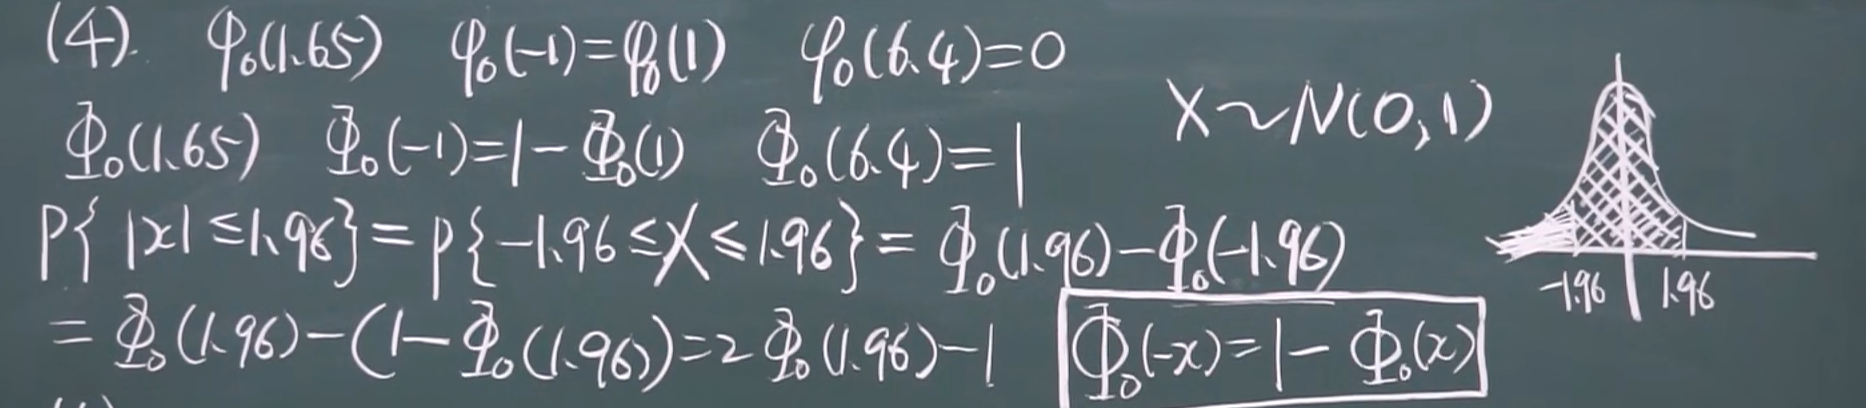 (4). φ₀(1.65) φ₀(-1)=φ₀(1) φ₀(6.4)=0
Φ₀(1.65) Φ₀(-1)=1-Φ₀(1) Φ₀(6.4)=1
X~N(0,1)
P{|x|≤1.96}=P{-1.96≤X≤1.96}=Φ₀(1.96)-Φ₀(-1.96)
=Φ₀(1.96)-(1-Φ₀(1.96))=2Φ₀(1.96)-1
Φ₀(-x)=1-Φ₀(x)
-1.96 1.96